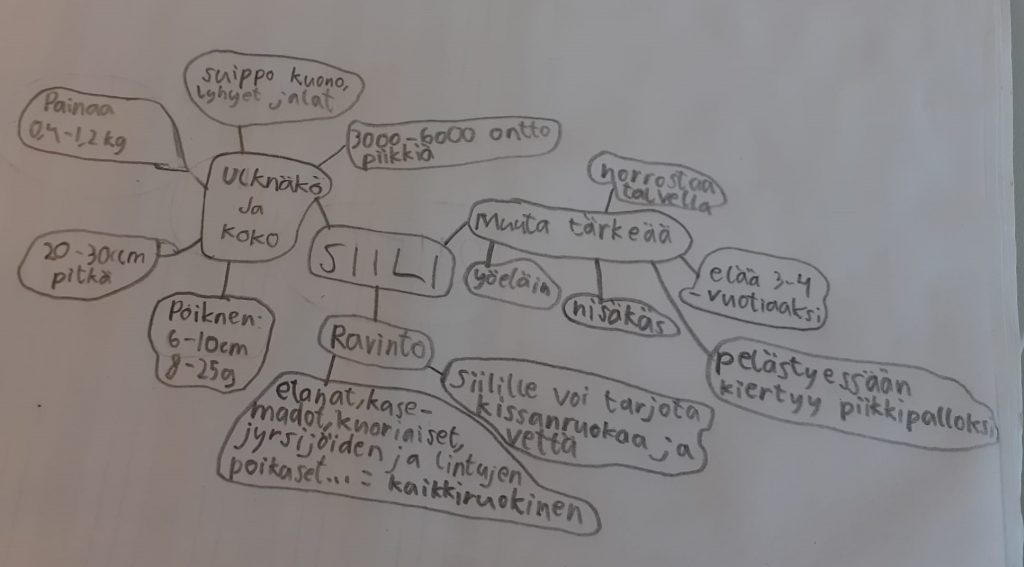 suippo kuono,
lyhyet jalat
Painaa
0,4-1,2kg
3000-6000 ontto
piikkiä
Ulknäkö
Ja
koko
20-30cm
pitkä
Poiknen:
6-10cm
8-25g
SIILI
Muuta tärkeää
horrostaa
talvella
yöeläin
nisäkäs
elää 3-4
-vuotiaaksi
pelästyessään
kiertyy piikkipalloksi
Ravinto
elanat, kase-
madot, kuoriaiset,
jyrsijöiden ja lintujen
poikaset... = kaikkiruokinen
Siilille voi tarjota
kissanruokaa ja
vettä